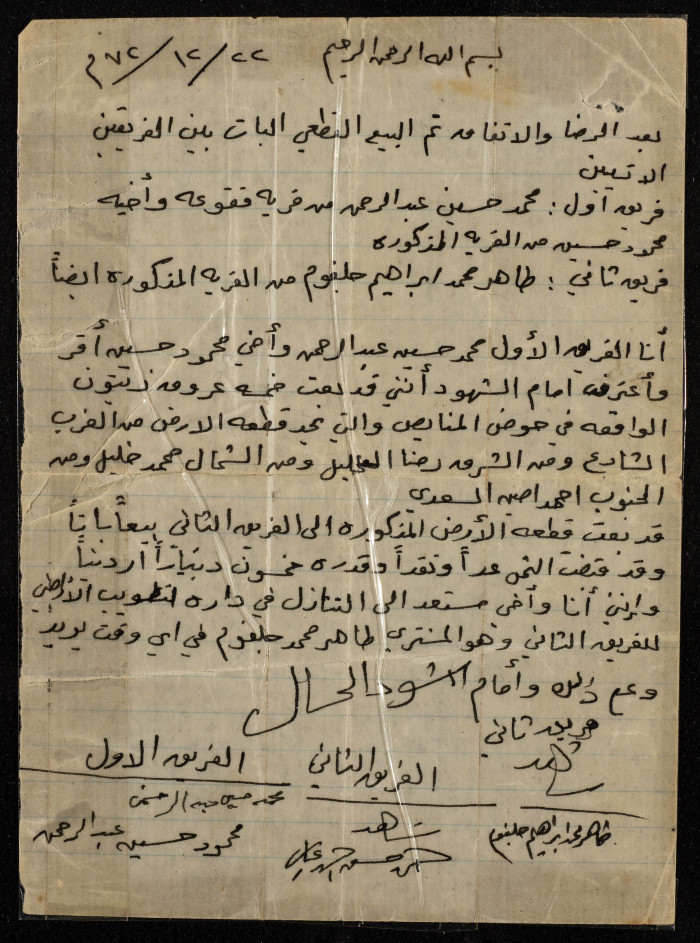 بسم الله الرحمن الرحيم ٢٢/١٢/٧٢م
بعد الرضا والاتفاق تم البيع القطعي البات بين الفريقين
الاتيين
فريق أول : محمد حسين عبد الرحمن من قريه فقوعه وأخيه
محمود حسين من القريه المذكوره
فريق ثاني : طاهر محمد ابراهيم جلغوم من القريه المذكوره ايضاً
أنا الفريق الأول محمد حسين عبد الرحمن وأخي محمود حسين أقر
وأعترف امام الشهود أنني قد بعت خمسه عروق زيتون
الواقعه في حوض المنايص والتي يحد قطعه الارض من الغرب
الشارع ومن الشرق رضا الخليل ومن الشمال محمد خليل ومن
الجنوب احمد امين السعدي
قد بعت قطعه الأرض المذكوره الى الفريق الثاني بيعاً باتاً
وقد قبضت الثمن عداً ونقداً وقدره خمسون ديناراً اردنياً
وإنني أنا وأخي مستعد الى التنازل في داره لتطويب الأراضي
للفريق الثاني وهو المشتري طاهر محمد جلغوم في اي وقت يريد
وعلى ذلك وأمام الشهود الحال
فريق ثاني
شاهد الفريق الثاني الفريق الاول
محمد حسين عبد الرحمن
طاهر محمد ابراهيم جلغوم شاهد محمود حسين عبد الرحمن